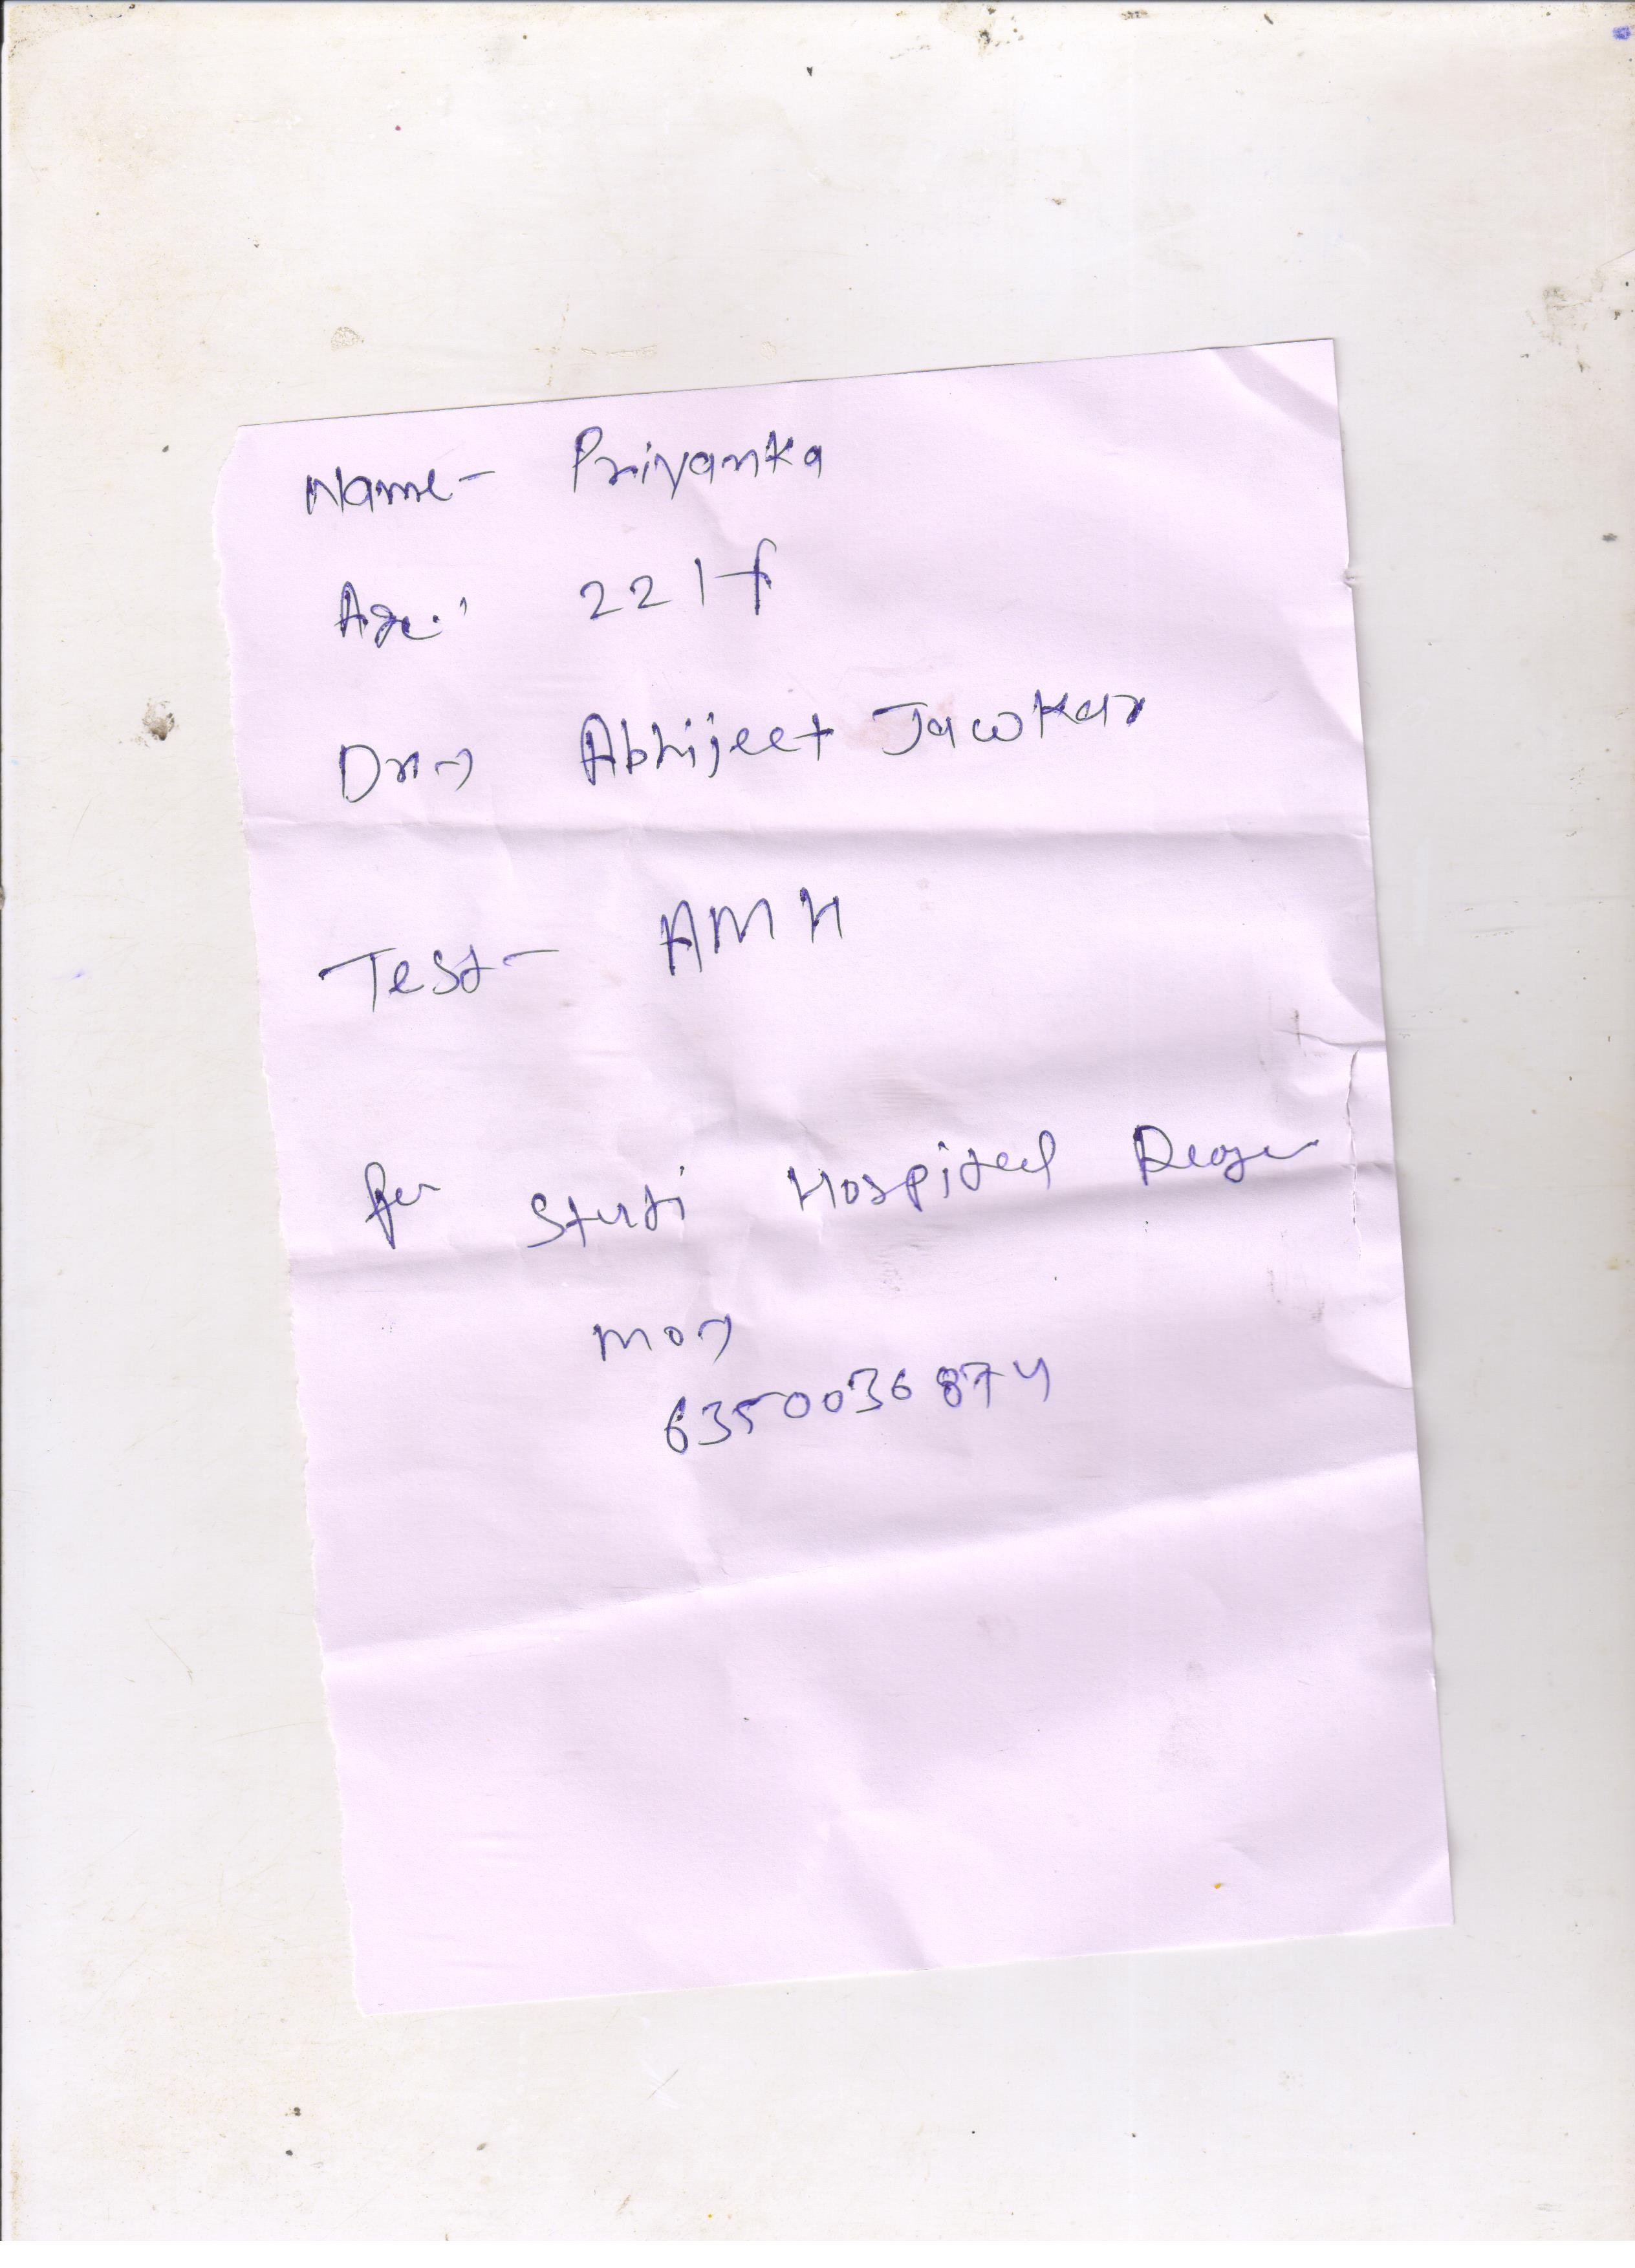 Name- Priyanka
Age: 22/f
Dr⇒ Abhijeet Jawkar
Test- AMH
for Stuti Hospital
mo⇒
6350036874